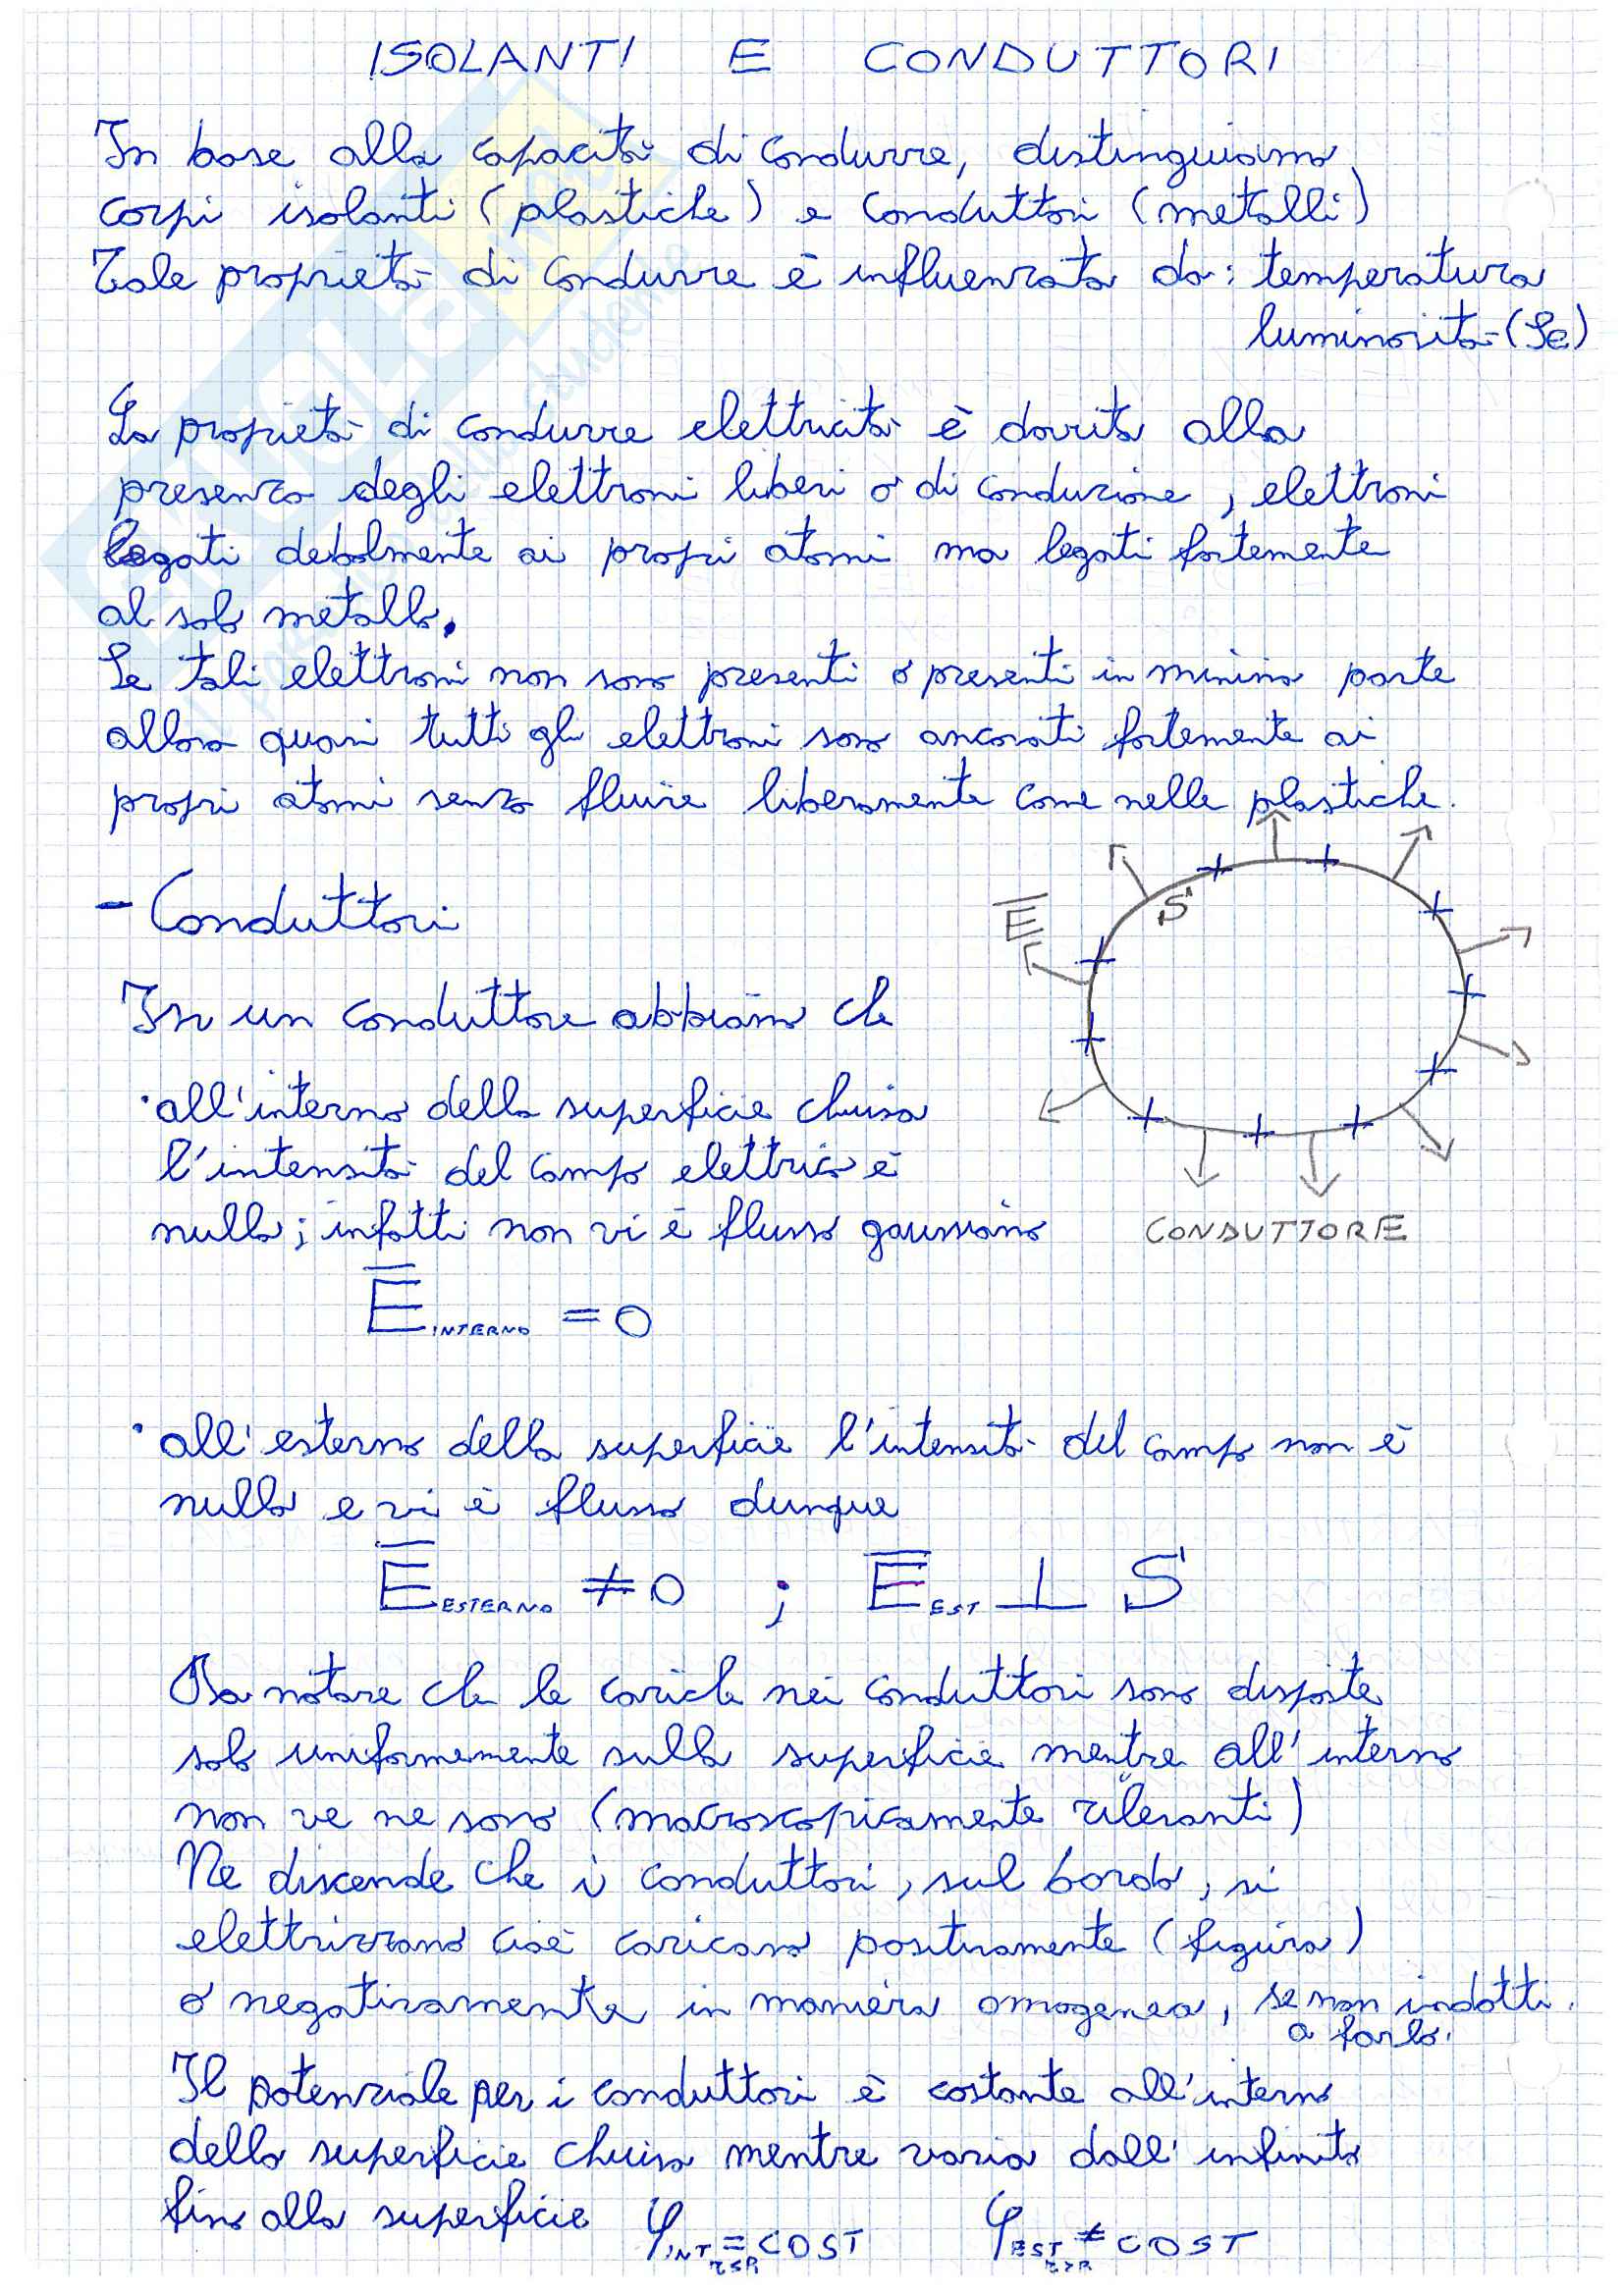 ISOLANTI E CONDUTTORI
In base alla capacità di condurre, distinguiamo
corpi isolanti (plastiche) e conduttori (metalli)
Tale proprietà di condurre è influenzata da: temperatura
luminosità (Se)
La proprietà di condurre elettricità è dovuta alla
presenza degli elettroni liberi o di conduzione, elettroni
legati debolmente ai propri atomi ma legati fortemente
al solo metallo.
Se tali elettroni non sono presenti o presenti in minima parte
allora quasi tutti gli elettroni sono ancorati fortemente ai
propri atomi senza fluire liberamente come nelle plastiche.
- Conduttori
E S
In un conduttore abbiamo che
· all'interno della superficie chiusa
l'intensità del campo elettrico è
nulla; infatti non vi è flusso gaussiano
CONDUTTORE
E̅ INTERNO = 0
· all'esterno della superficie l'intensità del campo non è
nulla e vi è flusso dunque
E̅ ESTERNO ≠ 0 ; E̅ EST ⊥ S
Da notare che le cariche nei conduttori sono disposte
solo uniformemente sulla superficie mentre all'interno
non ve ne sono (macroscopicamente rilevanti)
Ne discende che i conduttori, sul bordo, si
elettrizzano cioè caricano positivamente (figura)
o negativamente in maniera omogenea, se non indotti
a farlo.
Il potenziale per i conduttori è costante all'interno
della superficie chiusa mentre varia dall'infinito
fino alla superficie φ INT = COST φ EST ≠ COST
r≤R r>R